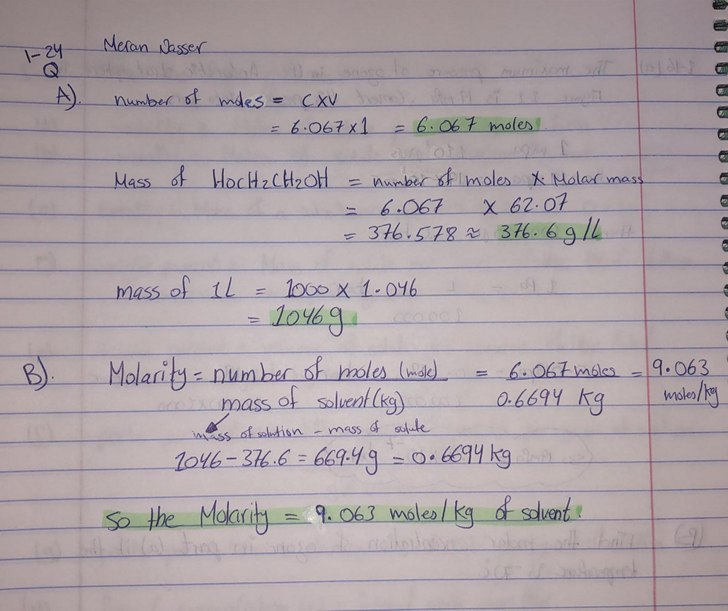 1-24
Q
Meran Nasser
A). number of moles = C×V
= 6.067×1 = 6.067 moles
Mass of HOCH2CH2OH = number of moles × Molar mass
= 6.067 × 62.07
= 376.578 ≈ 376.6 g/L
mass of 1L = 1000 × 1.046
= 1046g
B). Molarity = number of moles (mole) = 6.067 moles = 9.063
mass of solvent (kg) 0.6694 Kg moles/kg
mass of solution - mass of solute
1046 - 376.6 = 669.4g = 0.6694 kg
So the Molarity = 9.063 moles/kg of solvent.